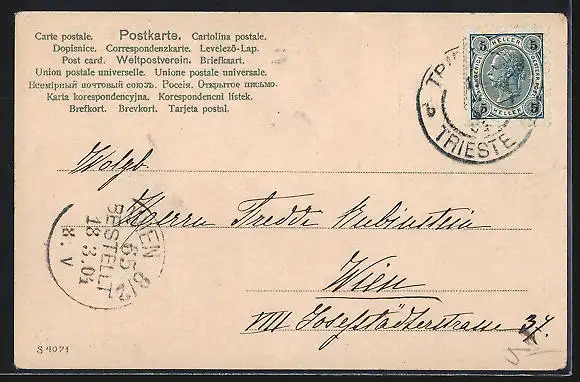 Carte postale. Postkarte. Cartolina postale.
Dopisnice. Correspondenzkarte. Levelező-Lap.
Post card. Weltpostverein. Briefkaart.
Union postale universelle. Unione postale universale.
Всемірный почтовый союзъ. Россія. Открытое письмо.
Karta korespondencyjna. Korespondenčni lístek.
Brefkort. Brevkort. Tarjeta postal.
5 HELLER 5
5 HELLER 5
TRIESTE
Wolgb
Herrn Fredde Rubinstein
Wien
VIII Josefstädterstrasse 37.
WIEN 8/2
65
BESTELLT
18.3.01
8.V
S 4071